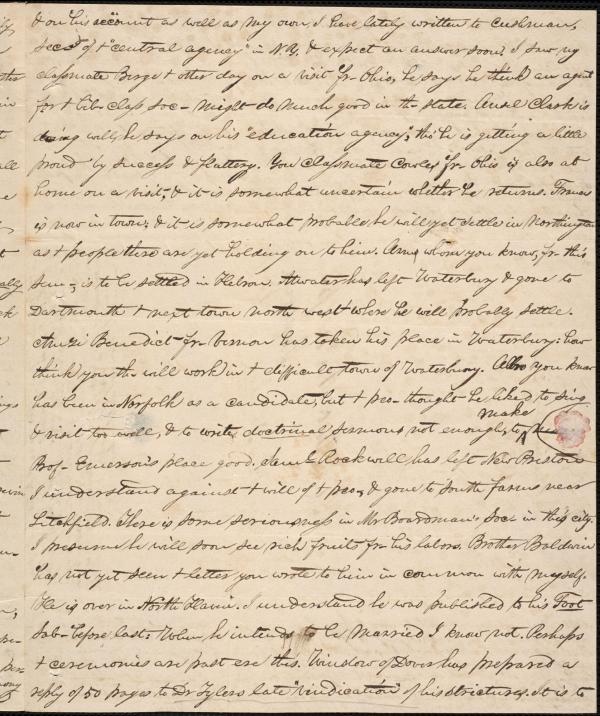 & on his account as well as my own. I have lately written to Cushman,
Sec. of + "central agency" in N.Y. & expect an answer soon. I saw my
classmate Birge + other day on a visit fr- Ohio, he says he think an agent
for + Bib- class Soc- might do much good in th- state. Ansel Clark is
doing well, he says on his "education agency", tho' he is getting a little
proud by success & flattery. You classmate Cowles fr- Ohio is also at
home on a visit, & it is somewhat uncertain whether he returns. Francis
is now in town; & it is somewhat probable he will yet settle in Worthington
as + people there are yet holding on to him. Arms whom you know, fr- this
Sem-, is to be settled in Hebron. Atwater has left Waterbury & gone to
Dartmouth + next town north west where he will probably settle.
Amzi Benedict fr- Vernon has taken his place in Waterbury: how
think you th- will work in + difficult town of Waterbury. Allso you know
has been in Norfolk as a candidate, but + peo- thought he liked to sing
& visit too well, & to write doctrinal sermons not enough, to make
Brof- Emerson's place good. Saml Rockwell has left New Preston
I understand against + will of + peo, & gone to South Farms near
Litchfield. There is some seriousness in Mr Boardman's Soc- in this city.
I presume he will soon see rich fruits fr- his labors. Brother Baldwin
has not yet seen + letter you wrote to him in common with myself.
He is over in North Haven. I understand he was published to his Foot
Sab- before last. When he intends to be married I know not. Perhaps
+ ceremonies are past ere this. Winslow of Dover has prepared a
reply of 50 pages to Dr Tylers late "vindication" of his strictures. It is to